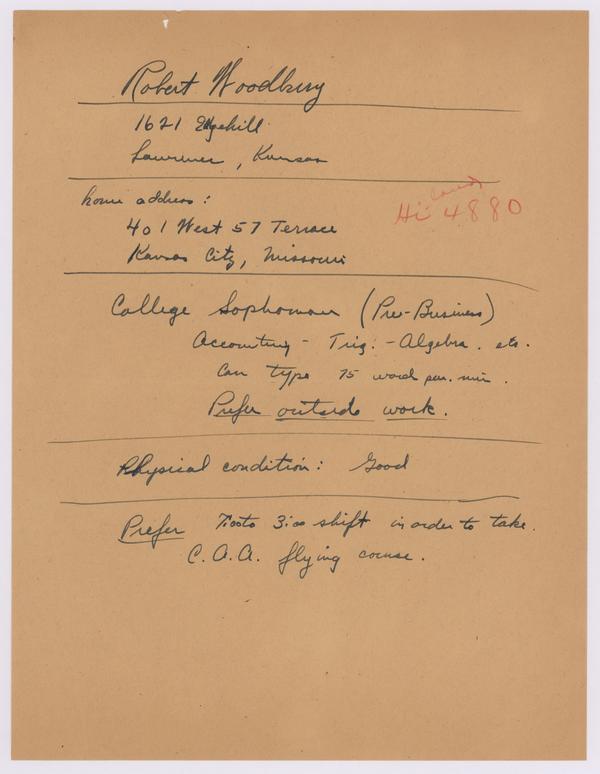 Robert Woodbury
1621 Edgehill
Lawrence, Kansas
home address:
Hi 4880
401 West 57 Terrace
Kansas City, Missouri
College Sophomore (Pre-Business)
Accounting - Trig. - Algebra. etc.
Can type 75 word per. min.
Prefer outside work.
Physical condition: Good
Prefer 7:00 to 3:00 shift in order to take.
C.A.A. flying course.